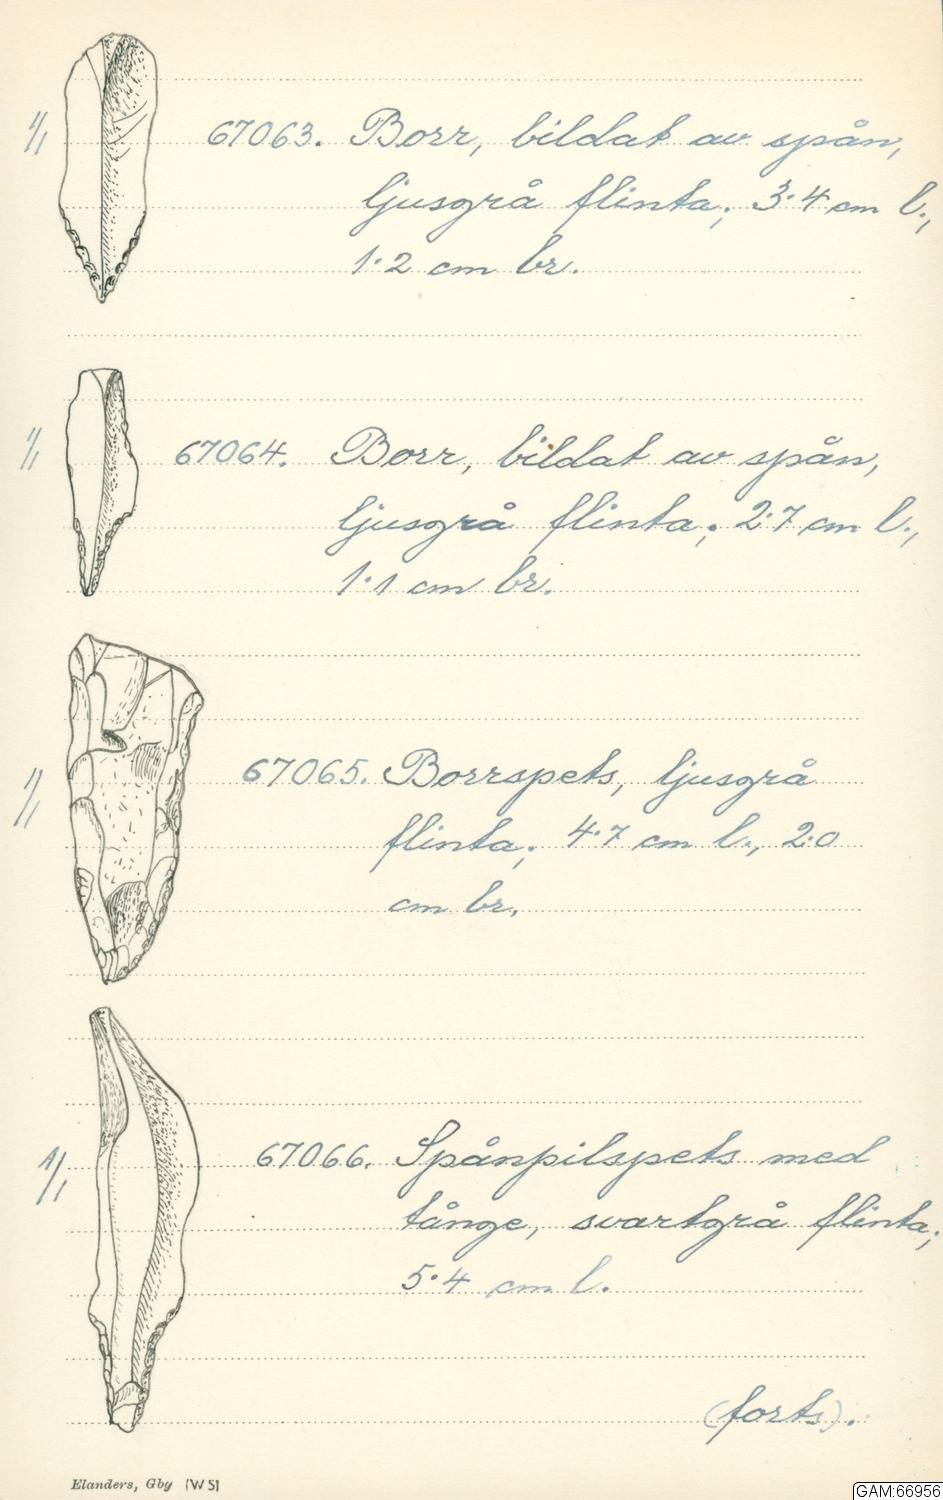 1/1 67063. Borr, bildat av spån,
ljusgrå flinta; 3·4 cm l.,
1·2 cm br.
1/1 67064. Borr, bildat av spån,
ljusgrå flinta; 2·7 cm l.,
1·1 cm br.
1/1 67065. Borrspets, ljusgrå
flinta; 4·7 cm l., 2·0
cm br.
1/1 67066. Spånpilspets med
tånge, svartgrå flinta;
5·4 cm l.
(forts).
Elanders, Gby (W S)
GAM:66956